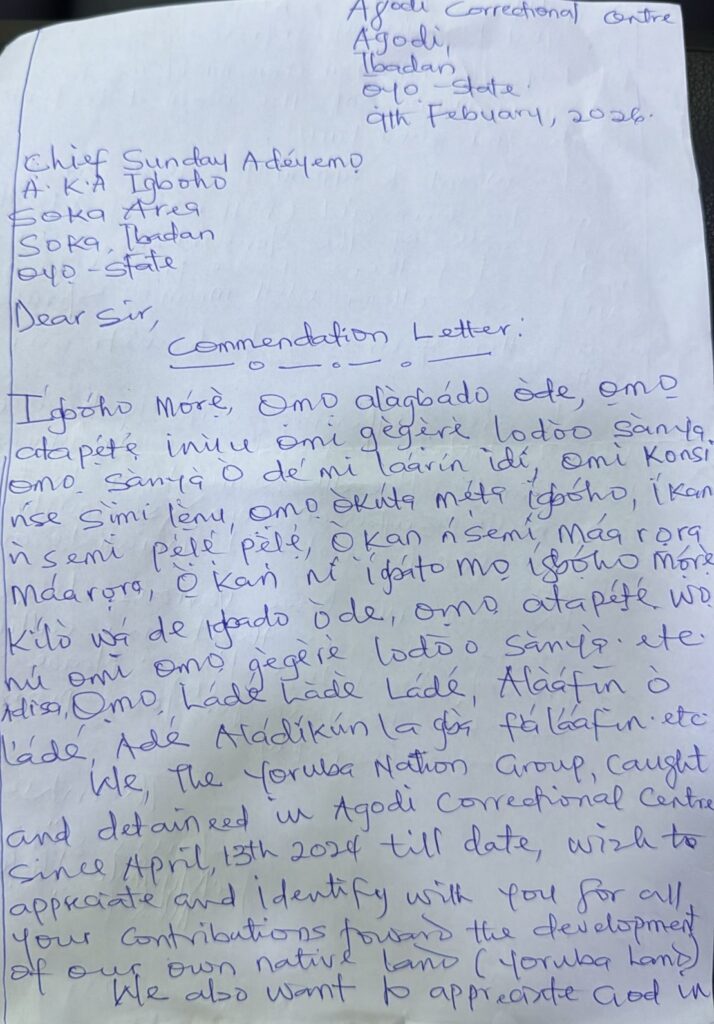 Agodi Correctional Centre
Agodi,
Ibadan
Oyo-State.
9th Febuary, 2026.
Chief Sunday Adéyemọ
A.K.A Igboho
SOKA Area
SOKA, Ibadan
Oyo-State
Dear Sir,
Commendation Letter:
Ígbóho Mórè, Ọmọ alàgbádo òde, ọmọ
atapẹ́tẹ́ inúu omi gègèrè lodòo Sànyà.
Ọmọ Sànyà Ò dé mi láàrín ìdí, omi Konsi
ńse Sìmi lẹ̀nu, Ọmọ Òkúta mẹ́ta ígbóho, íkan
ǹsemi pẹ̀lẹ́ pẹ̀lẹ́, Òkan ńsemí Máa rọra
Máarọra, Òkan ní ígbáto mọ ígbóho Mórè
Kílò wá de Igbado Òde, ọmọ atapẹ́tẹ́ wọ
nú omi ọmọ gègèrè lodòo Sànyà. etc.
Adisa, Ọmọ Ládé Ládè Ládé, Aláàfin ò
ládé, Adé Aládíkún la gbà fáláàfin. etc
We, The Yoruba Nation Group, Caught
and detaineed in Agodi Correctional Centre
since April, 13th 2024 till date, wish to
appreciate and identify with you for all
your contributions toward the development
of our own native land (Yoruba Land)
We also want to appreciate God in